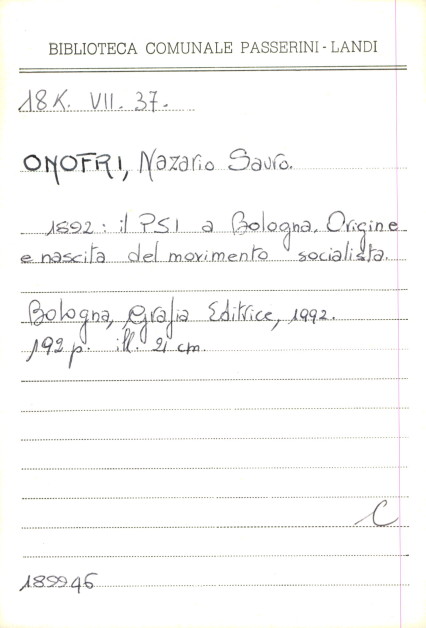 BIBLIOTECA COMUNALE PASSERINI-LANDI
18K. VII. 37.
ONOFRI, Nazario Sauro.
1892: il PSI a Bologna. Origine
e nascita del movimento socialista.
Bologna, Grafia Editrice, 1992.
192 p. ill. 21 cm.
C
189946